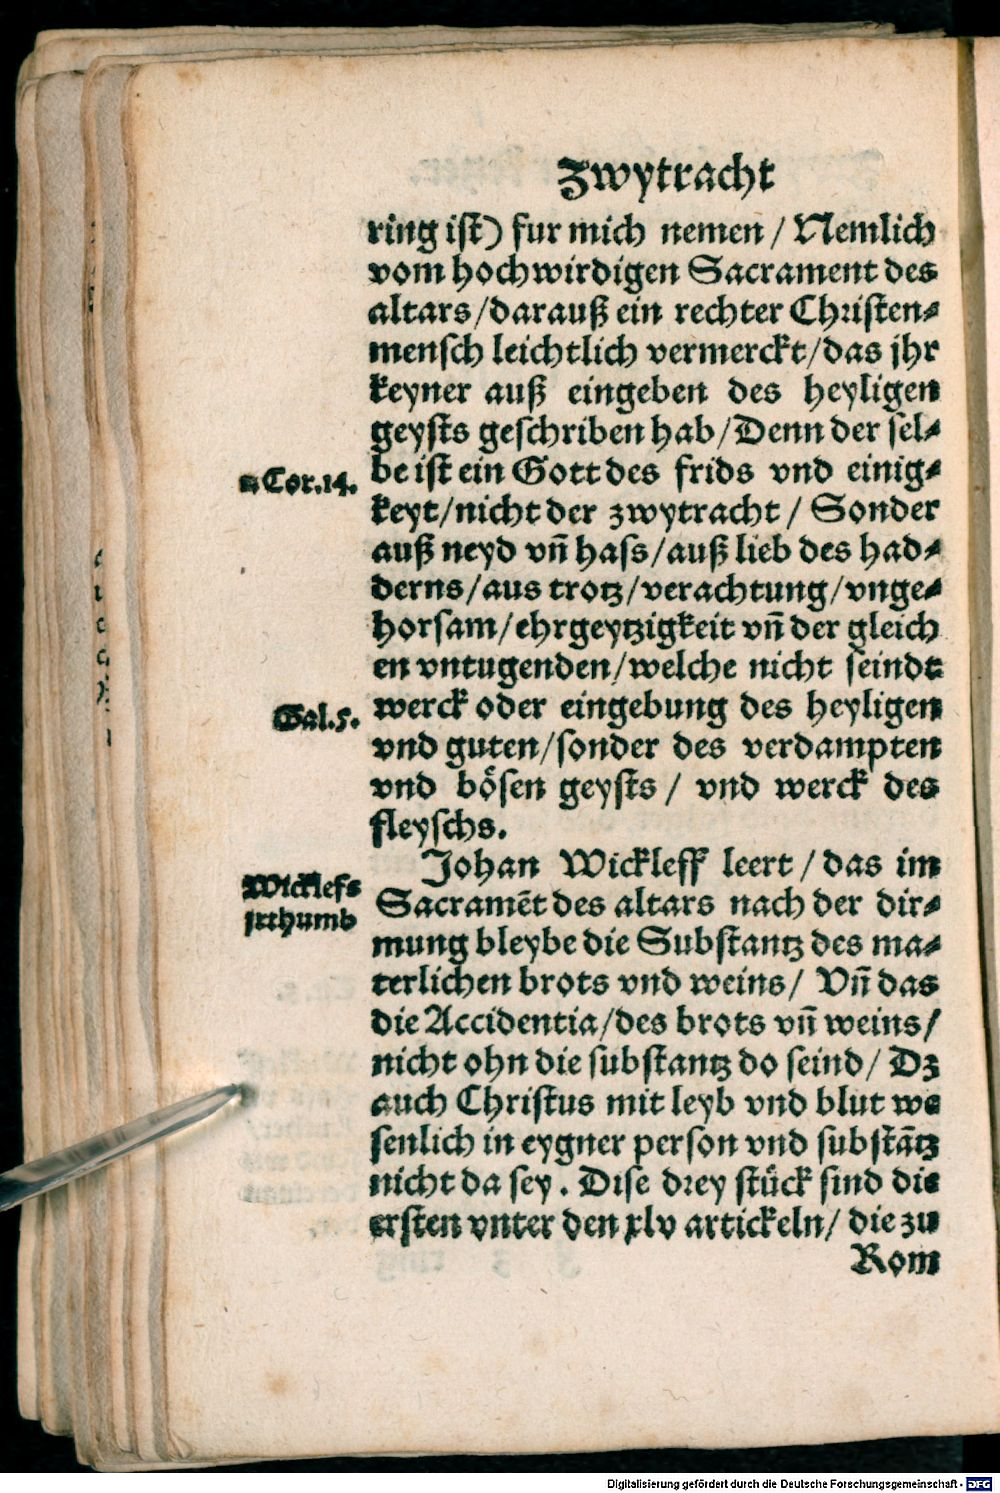 Zwytracht
ring ist) fur mich nemen / Nemlich
vom hochwirdigen Sacrament des
altars / darauß ein rechter Christen-
mensch leichtlich vermerckt / das jhr
keyner auß eingeben des heyligen
geysts geschriben hab / Denn der sel-
be ist ein Gott des frids vnd einig-
Cor. 14.
keyt / nicht der zwytracht / Sonder
auß neyd vñ hass / auß lieb des had-
derns / aus trotz / verachtung / vnge-
horsam / ehrgeytzigkeit vñ der gleich
en vntugenden / welche nicht seindt
werck oder eingebung des heyligen
Gal. 5.
vnd guten / sonder des verdampten
vnd bösen geysts / vnd werck des
fleyschs.
Johan Wickleff leert / das im
Wicklefs
jrthumb
Sacramẽt des altars nach der dir-
mung bleybe die Substantz des ma-
terlichen brots vnd weins / Vñ das
die Accidentia / des brots vñ weins /
nicht ohn die substantz do seind / Dz
auch Christus mit leyb vnd blut we
senlich in eygner person vnd substãtz
nicht da sey. Dise drey stück sind die
ersten vnter den xlv artickeln / die zu
Rom
Digitalisierung gefördert durch die Deutsche Forschungsgemeinschaft - DFG